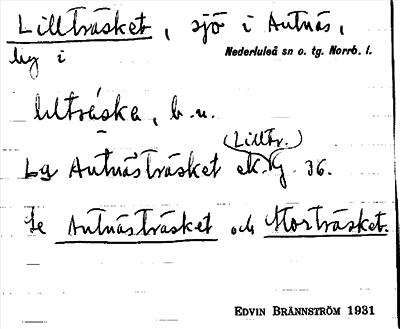 Lillträsket, sjö i Autnäs,
by i Nederluleå sn o. tg. Norrb. l.
b.u.
(Lilltr.)
Lg Autnästräsket ek. 36.
Se Autnästräsket och Storträsket.
EDVIN BRÄNNSTRÖM 1931